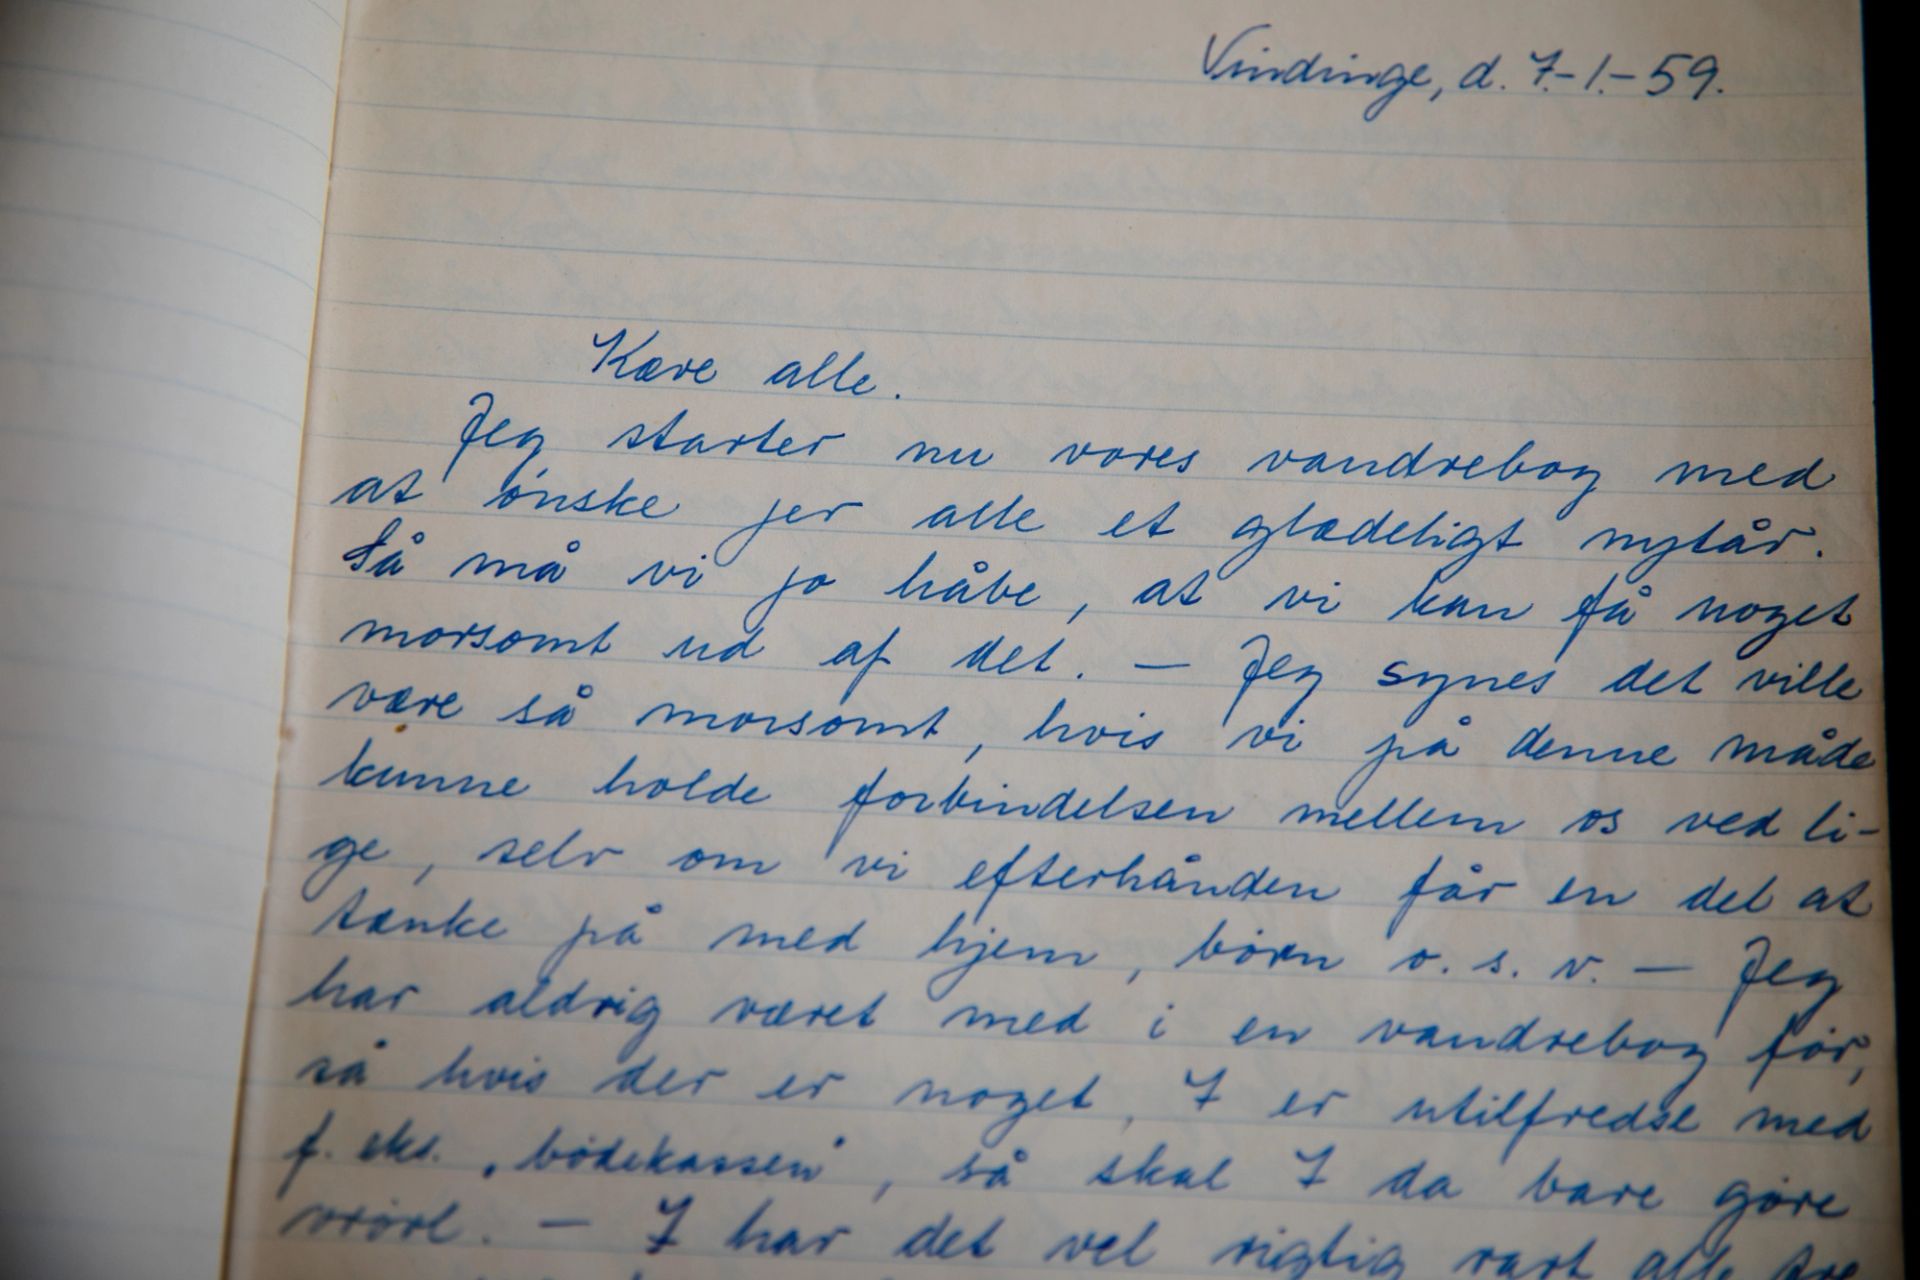 Vindinge, d. 7.-1.-59.
Kære alle.
Jeg starter nu vores vandrebog med
at ønske jer alle et glædeligt nytår.
Så må vi jo håbe, at vi kan få noget
morsomt ud af det. — Jeg synes det ville
være så morsomt, hvis vi på denne måde
kunne holde forbindelsen mellem os ved li-
ge, selv om vi efterhånden får en del at
tænke på med hjem, børn o. s. v. — Jeg
har aldrig været med i en vandrebog før,
så hvis der er noget, I er utilfredse med
f. eks. „bødekassen", så skal I da bare gøre
vrøvl. — I har det vel rigtig rart alle tre